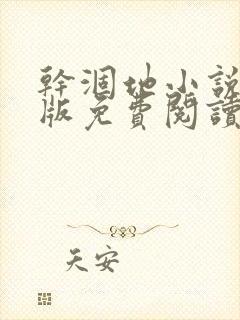 幹涸地小說
版免費閱讀
天安